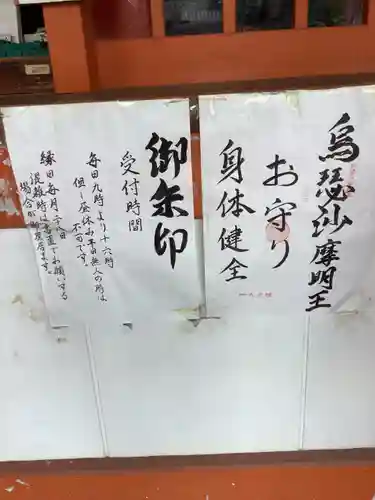 烏瑟沙摩明王
お守り
身体健全
御朱印
受付時間
毎日九時より十六時
但し昼休み平日無人の時は
不可です。
縁日毎月二十八日
混雑時は書置でお願いする
場合が御座居ます。